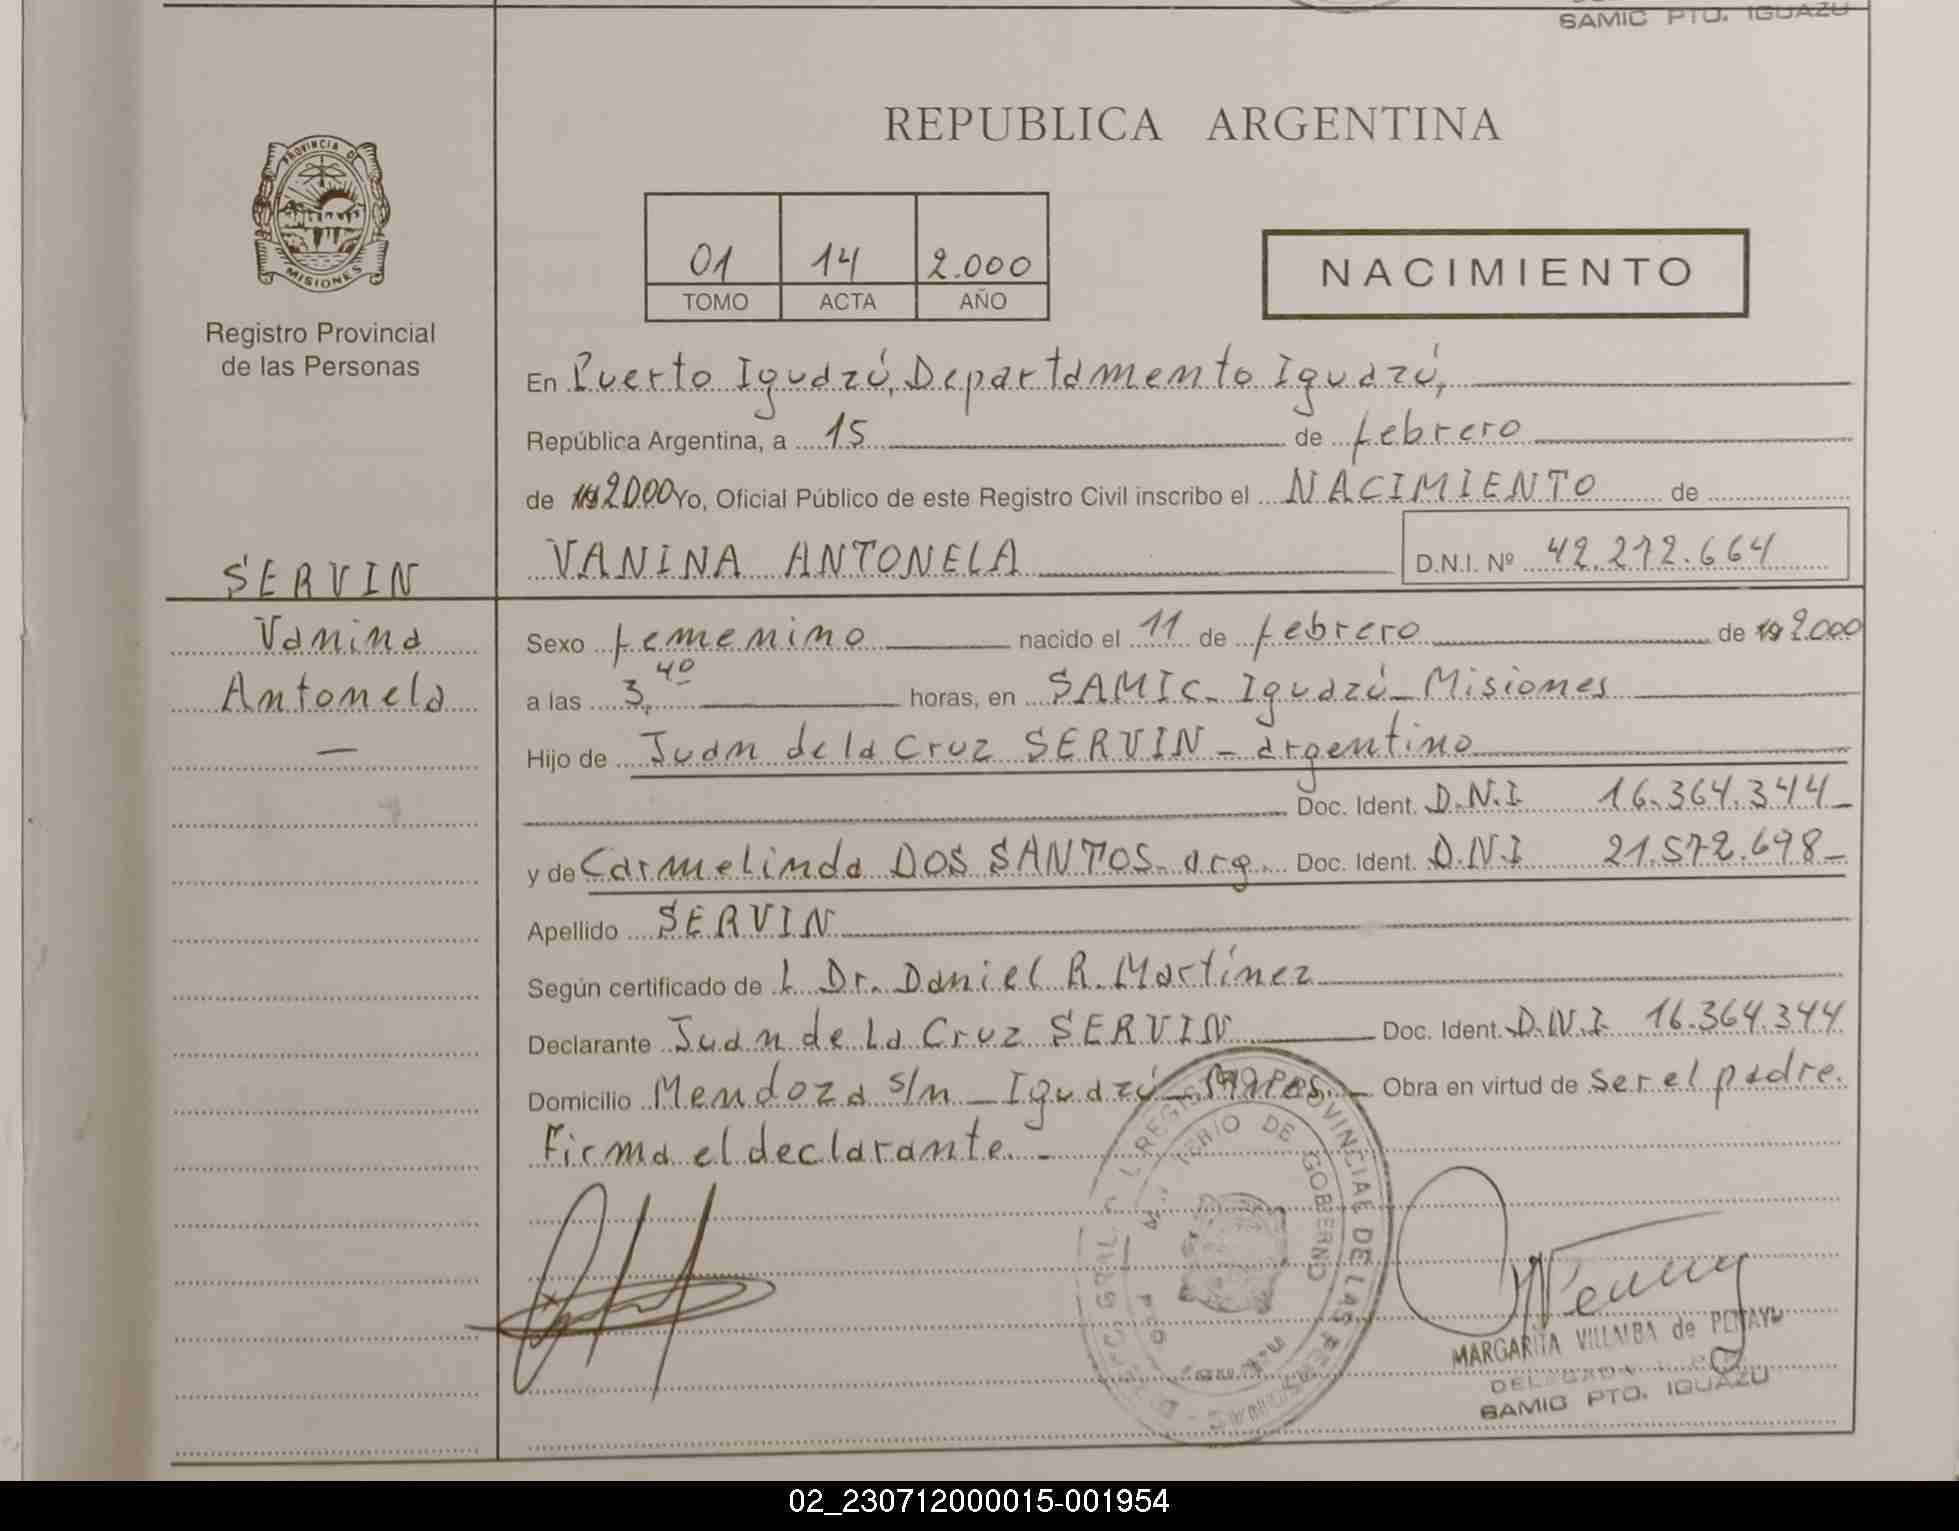 SAMIC PTO. IGUAZU
PROVINCIA DE
MISIONES
Registro Provincial
de las Personas
REPUBLICA ARGENTINA
01 14 2.000
TOMO ACTA AÑO
NACIMIENTO
En Puerto Iguazú, Departamento Iguazú,
República Argentina, a 15 de febrero
de 2000 Yo, Oficial Público de este Registro Civil inscribo el NACIMIENTO de
VANINA ANTONELA
D.N.I. Nº 42.272.664
SERVIN
Vanina
Antonela
—
Sexo femenino nacido el 11 de febrero de 2.000
a las 3,40 horas, en SAMIC - Iguazú - Misiones
Hijo de Juan de la Cruz SERVIN - argentino
Doc. Ident. D.N.I 16.364.344 -
y de Carmelinda DOS SANTOS - arg. Doc. Ident. D.N.I 21.572.698 -
Apellido SERVIN
Según certificado de L Dr. Daniel R. Martínez
Declarante Juan de La Cruz SERVIN Doc. Ident. D.N.I 16.364.344
Domicilio Mendoza s/n - Iguazú - Mnes. - Obra en virtud de ser el padre.
Firma el declarante. -
REGISTRO PROVINCIAL DE LAS PERSONAS
DE GOBERNO
MARGARITA VILLALBA de PENAYO
DELEGADA
SAMIC PTO. IGUAZU
02_230712000015-001954